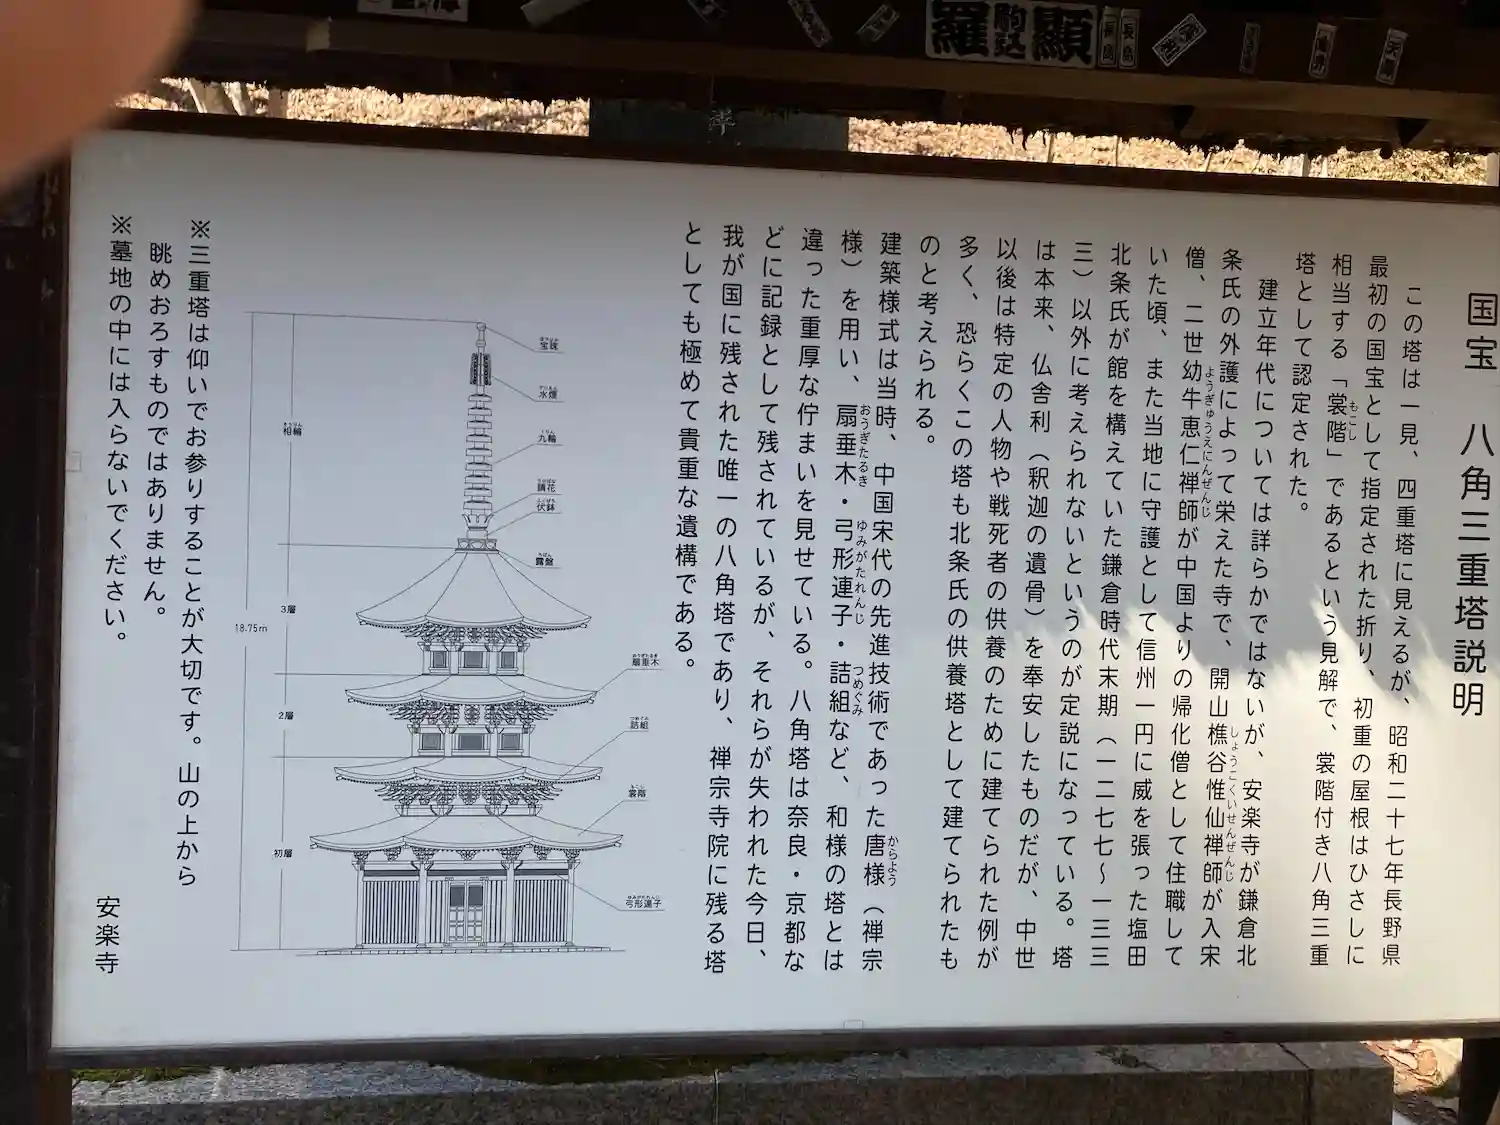 羅 駒込 顯
長島
長島
国宝 八角三重塔説明
この塔は一見、四重塔に見えるが、昭和二十七年長野県
最初の国宝として指定された折り、初重の屋根はひさしに
相当する「裳階」であるという見解で、裳階付き八角三重
もこし
塔として認定された。
建立年代については詳らかではないが、安楽寺が鎌倉北
条氏の外護によって栄えた寺で、開山樵谷惟仙禅師が入宋
しょうこくいせんぜんじ
僧、二世幼牛恵仁禅師が中国よりの帰化僧として住職して
ようぎゅうえにんぜんじ
いた頃、また当地に守護として信州一円に威を張った塩田
北条氏が館を構えていた鎌倉時代末期（一二七七～一三三
三）以外に考えられないというのが定説になっている。塔
は本来、仏舎利（釈迦の遺骨）を奉安したものだが、中世
以後は特定の人物や戦死者の供養のために建てられた例が
多く、恐らくこの塔も北条氏の供養塔として建てられたも
のと考えられる。
建築様式は当時、中国宋代の先進技術であった唐様（禅宗
からよう
様）を用い、扇垂木・弓形連子・詰組など、和様の塔とは
おうぎたるき ゆみがたれんじ つめぐみ
違った重厚な佇まいを見せている。八角塔は奈良・京都な
どに記録として残されているが、それらが失われた今日、
我が国に残された唯一の八角塔であり、禅宗寺院に残る塔
としても極めて貴重な遺構である。
宝珠
水煙
九輪
請花
伏鉢
露盤
扇垂木
詰組
裳階
弓形連子
相輪
3層
2層
初層
18.75m
※三重塔は仰いでお参りすることが大切です。山の上から
眺めおろすものではありません。
※墓地の中には入らないでください。
安楽寺